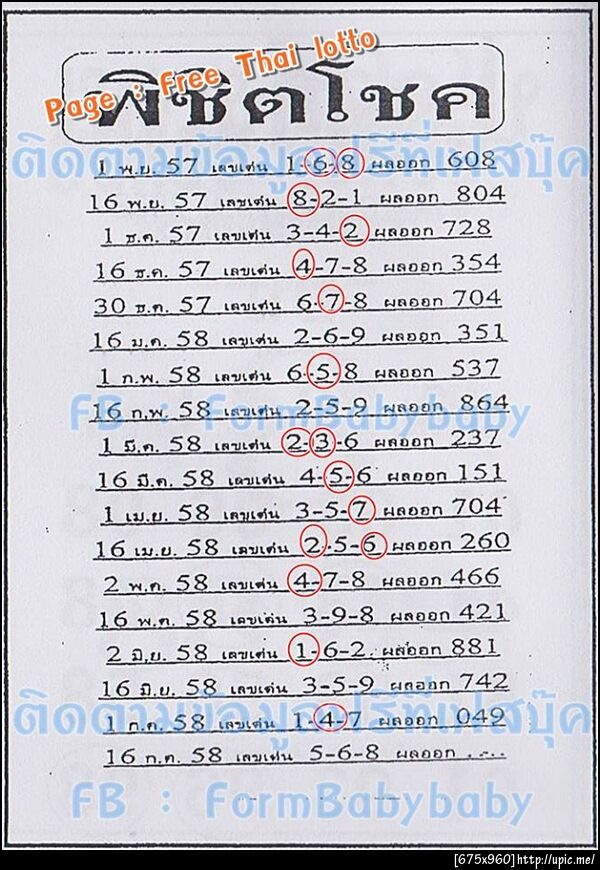 Page : Free Thai lotto
พิชิตโชค
ติดตามข้อมูลฟรีที่เฟสบุ๊ค
1 พ.ย. 57 เลขเด่น 1-6-8 ผลออก 608
16 พ.ย. 57 เลขเด่น 8-2-1 ผลออก 804
1 ธ.ค. 57 เลขเด่น 3-4-2 ผลออก 728
16 ธ.ค. 57 เลขเด่น 4-7-8 ผลออก 354
30 ธ.ค. 57 เลขเด่น 6-7-8 ผลออก 704
16 ม.ค. 58 เลขเด่น 2-6-9 ผลออก 351
1 ก.พ. 58 เลขเด่น 6-5-8 ผลออก 537
16 ก.พ. 58 เลขเด่น 2-5-9 ผลออก 864
FB : FormBabybaby
1 มี.ค. 58 เลขเด่น 2-3-6 ผลออก 237
16 มี.ค. 58 เลขเด่น 4-5-6 ผลออก 151
1 เม.ย. 58 เลขเด่น 3-5-7 ผลออก 704
16 เม.ย. 58 เลขเด่น 2-5-6 ผลออก 260
2 พ.ค. 58 เลขเด่น 4-7-8 ผลออก 466
16 พ.ค. 58 เลขเด่น 3-9-8 ผลออก 421
2 มิ.ย. 58 เลขเด่น 1-6-2 ผลออก 881
16 มิ.ย. 58 เลขเด่น 3-5-9 ผลออก 742
ติดตามข้อมูลฟรีที่เฟสบุ๊ค
1 ก.ค. 58 เลขเด่น 1-4-7 ผลออก 049
16 ก.ค. 58 เลขเด่น 5-6-8 ผลออก .....
FB : FormBabybaby
[675x960]http://upic.me/